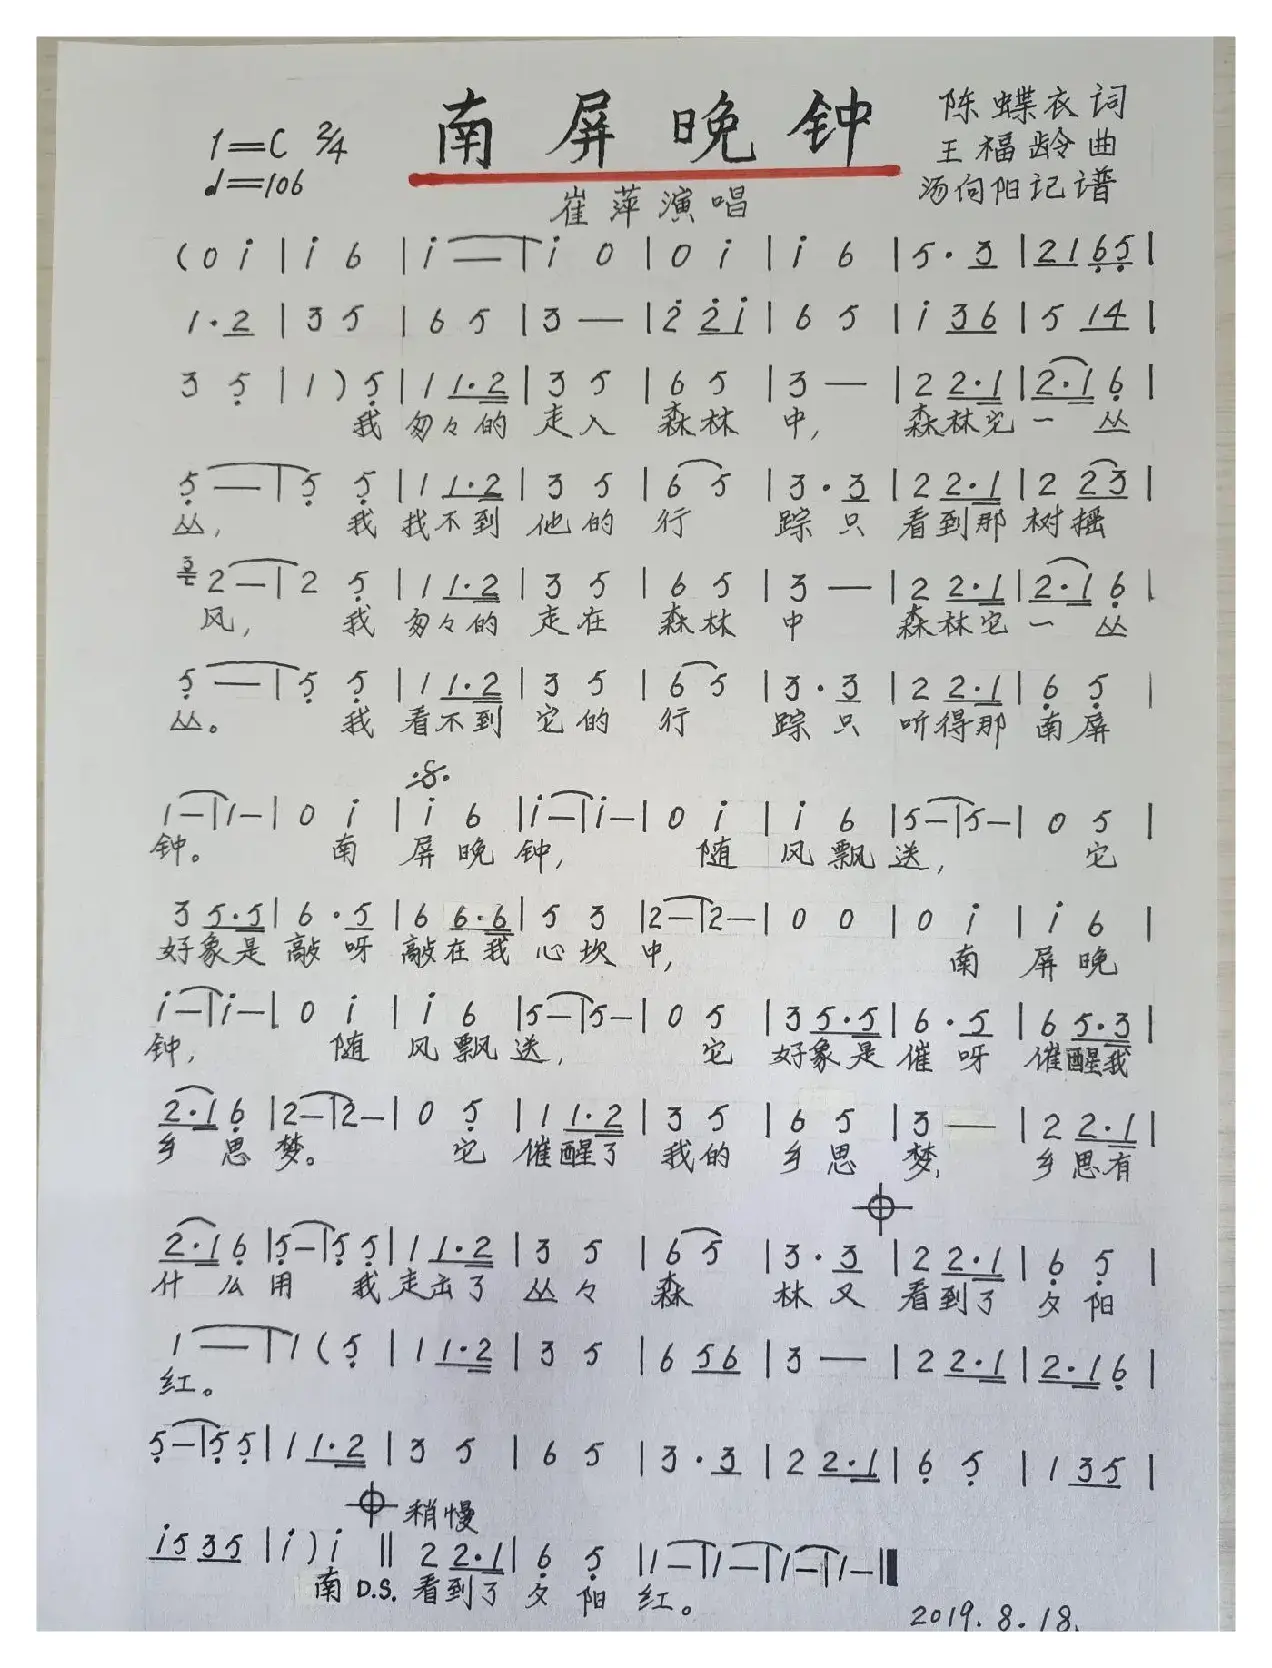 南屏晚钟
1=C 2/4
♩=106
陈蝶衣词
王福龄曲
汤向阳记谱
崔萍演唱
(0 i | i 6 | i — | i 0 | 0 i | i 6 | 5·3 | 2165 |
1·2 | 3 5 | 6 5 | 3 — | 2 2i | 6 5 | i 36 | 5 14 |
3 5 | 1) 5 | 1 1·2 | 3 5 | 6 5 | 3 — | 2 2·1 | 2·1 6 |
我 匆々的 走入 森林 中, 森林它一 丛
5 — | 5 5 | 1 1·2 | 3 5 | 6 5 | 3·3 | 2 2·1 | 2 23 |
丛, 我 找不到 他的 行 踪只 看到那 树摇
2 — | 2 5 | 1 1·2 | 3 5 | 6 5 | 3 — | 2 2·1 | 2·1 6 |
风, 我 匆々的 走在 森林 中 森林它一 丛
5 — | 5 5 | 1 1·2 | 3 5 | 6 5 | 3·3 | 2 2·1 | 6 5 |
丛。 我 看不到 它的 行 踪只 听得那 南屏
1— | 1— | 0 i | i 6 | i— | i— | 0 i | i 6 | 5— | 5— | 0 5 |
钟。 南 屏晚 钟, 随 风飘 送, 它
3 5·5 | 6·5 | 6 6·6 | 5 3 | 2— | 2— | 0 0 | 0 i | i 6 |
好象是 敲呀 敲在我 心坎 中, 南 屏晚
i— | i— | 0 i | i 6 | 5— | 5— | 0 5 | 3 5·5 | 6·5 | 6 5·3 |
钟, 随 风飘 送, 它 好象是 催呀 催醒我
2·1 6 | 2— | 2— | 0 5 | 1 1·2 | 3 5 | 6 5 | 3 — | 2 2·1 |
乡 思 梦。 它 催醒了 我的 乡思 梦, 乡思有
2·1 6 | 5— | 5 5 | 1 1·2 | 3 5 | 6 5 | 3·3 | 2 2·1 | 6 5 |
什么 用 我 走出了 丛々 森 林又 看到了 夕阳
1 — | 1 (5 | 1 1·2 | 3 5 | 6 56 | 3 — | 2 2·1 | 2·1 6 |
红。
5— | 5 5 | 1 1·2 | 3 5 | 6 5 | 3·3 | 2 2·1 | 6 5 | 1 35 |
稍慢
i5 35 | i) i || 2 2·1 | 6 5 | 1— | 1— | 1— | 1— ||
南 D.S. 看到了 夕阳 红。
2019.8.18.